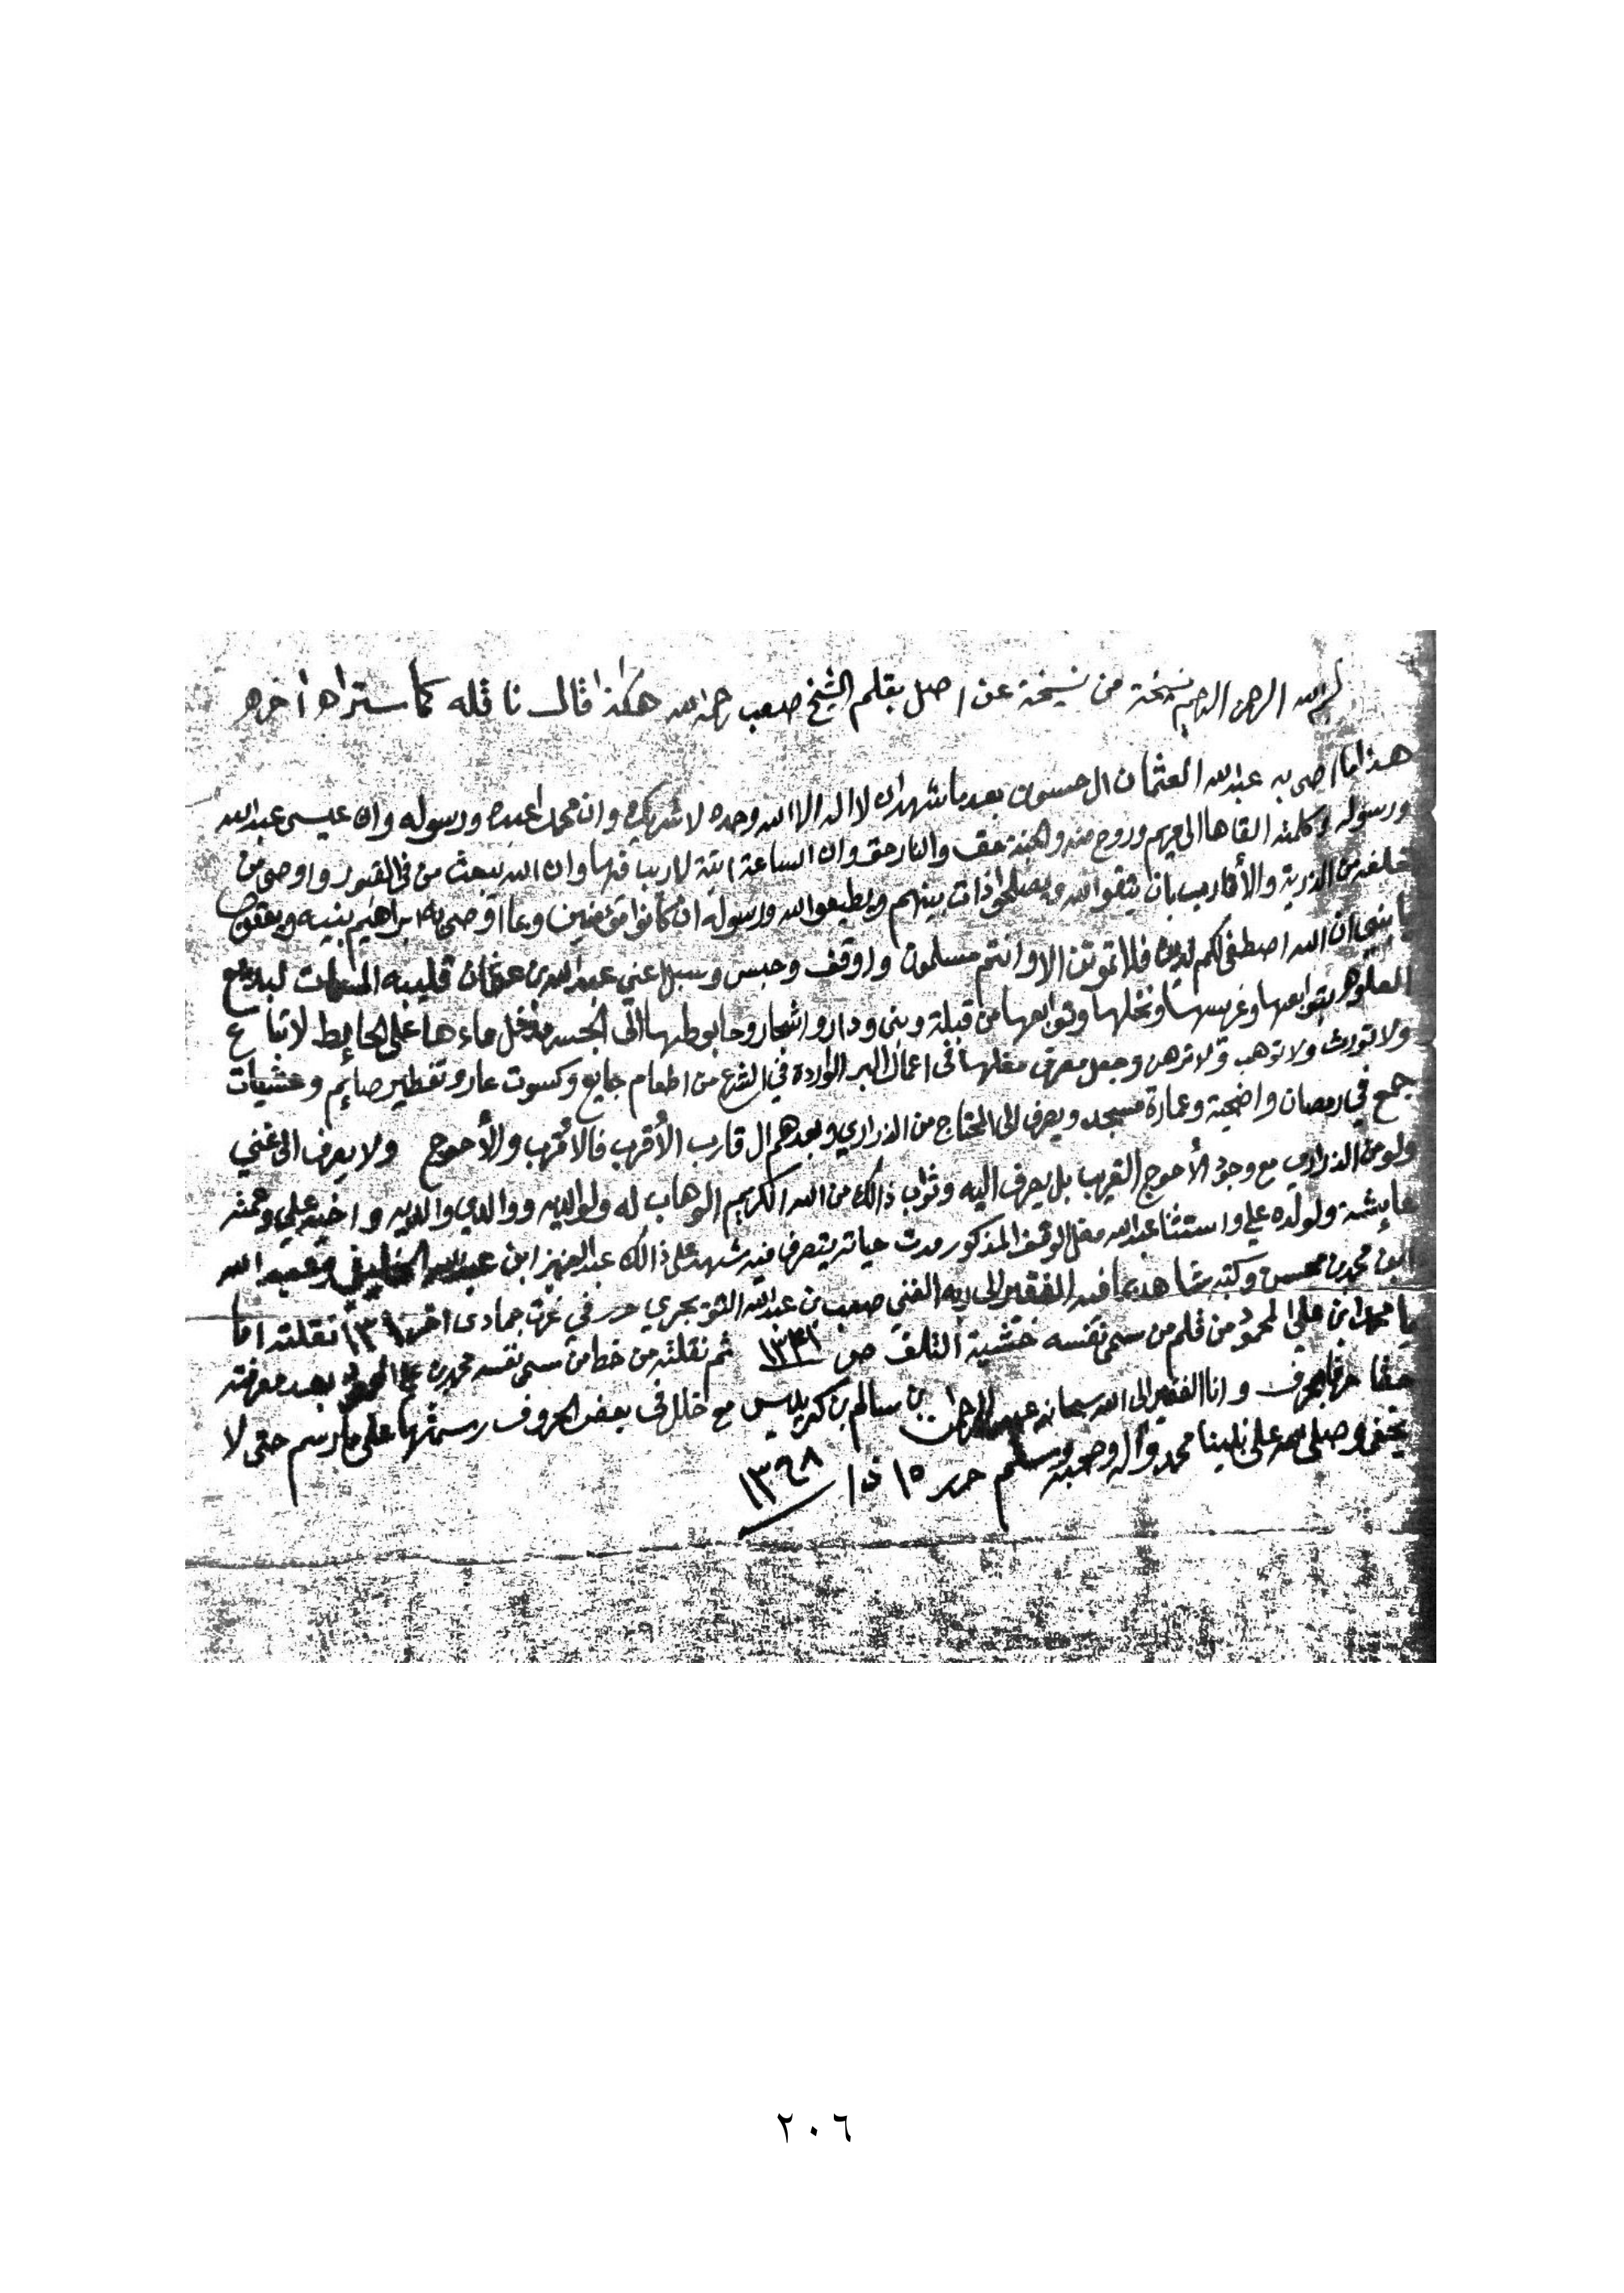 بسم الله الرحمن الرحيم نسخة من نسخة عن اصل بقلم الشيخ صعب رحمه الله هكذا قال ناقله كما ستراه اخره
هذا ما اوصى به عبدالله العثمان الحسون بعدما شهد ان لا اله الا الله وحده لا شريك له وان محمدا عبده ورسوله وان عيسى عبدالله
ورسوله وكلمته القاها الى مريم وروح منه والجنة حق والنار حق وان الساعة اتية لا ريب فيها وان الله يبعث من في القبور واوصى من
خلفه من الذرية والأقارب بان يتقوا الله ويصلحوا ذات بينهم ويطيعوا الله ورسوله ان كانوا مؤمنين وبما اوصى به ابراهيم بنيه ويعقوب
يا بني ان الله اصطفى لكم الدين فلا تموتن الا وانتم مسلمون واوقف وحبس وسبل عني عبدالله بن عثمان قليبه
بتوابعها وغريسها ونخلها وتوابعها من قبلة وبني ودار واشجار وحايوطها الى الجسر ماءها على الحايط لا تباع
ولا تورث ولا توهب ولا ترهن وجعل مصرف مغلها في اعمال البر الواردة في الشرع من اطعام جايع وكسوت عار وتفطير صايم وعشيات
جمع في رمضان واضحية وعمارة مسجد ويصرف الى المحتاج من الذراري وبعدهم ال قارب الأقرب فالاقرب والأحوج ولا يصرف الى غني
ولو من الذراري مع وجود الأحوج القريب بل يصرف اليه وثواب ذالك من الله الكريم الوهاب له ولوالديه ووالدي والديه واخيه علي وعمته
عايشة ولولده علي واستثنا عبدالله مغل الوقف المذكور مدت حياته يتصرف فيه شهد على ذالك عبدالعزيز ابن عبدالله وعبدالله
ابن محمد بن محسن وكتبه شاهد بما فيه الفقير الى ربه الغني صعب بن عبدالله التويجري حرر في غرت جمادى اخر نقلته انا
يا محمد ابن علي المحمود من قلم من سمى نفسه خشية التلف ص ثم نقلته من خط من سمى نفسه محمد بن علي المحمود بعد معرفته
حرفا بحرف وانا الفقير الى الله سبحانه عبدالرحمن بن سالم بن كريديس مع اخلل في بعض الحروف رسمتها على ما رسم حتى لا
يخفى وصلى الله على نبينا محمد واله وصحبه وسلم حرر ١٥ ذا ١٣٦٨
٢٠٦